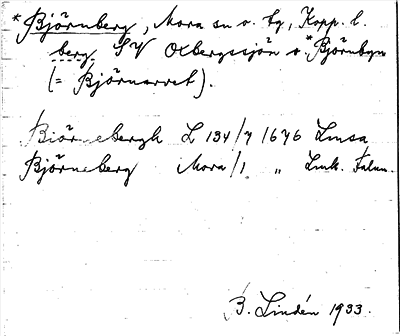 *Björnberg, Mora sn o. tg, Kopp. l.
berg SV Olbergssjön o. *Björnbyn
(= Björnarvet).
Biörnebergh L 134/7 1676 Linsa
Björneberg Mora/1 " Lmk. Falun.
B. Lindén 1933.